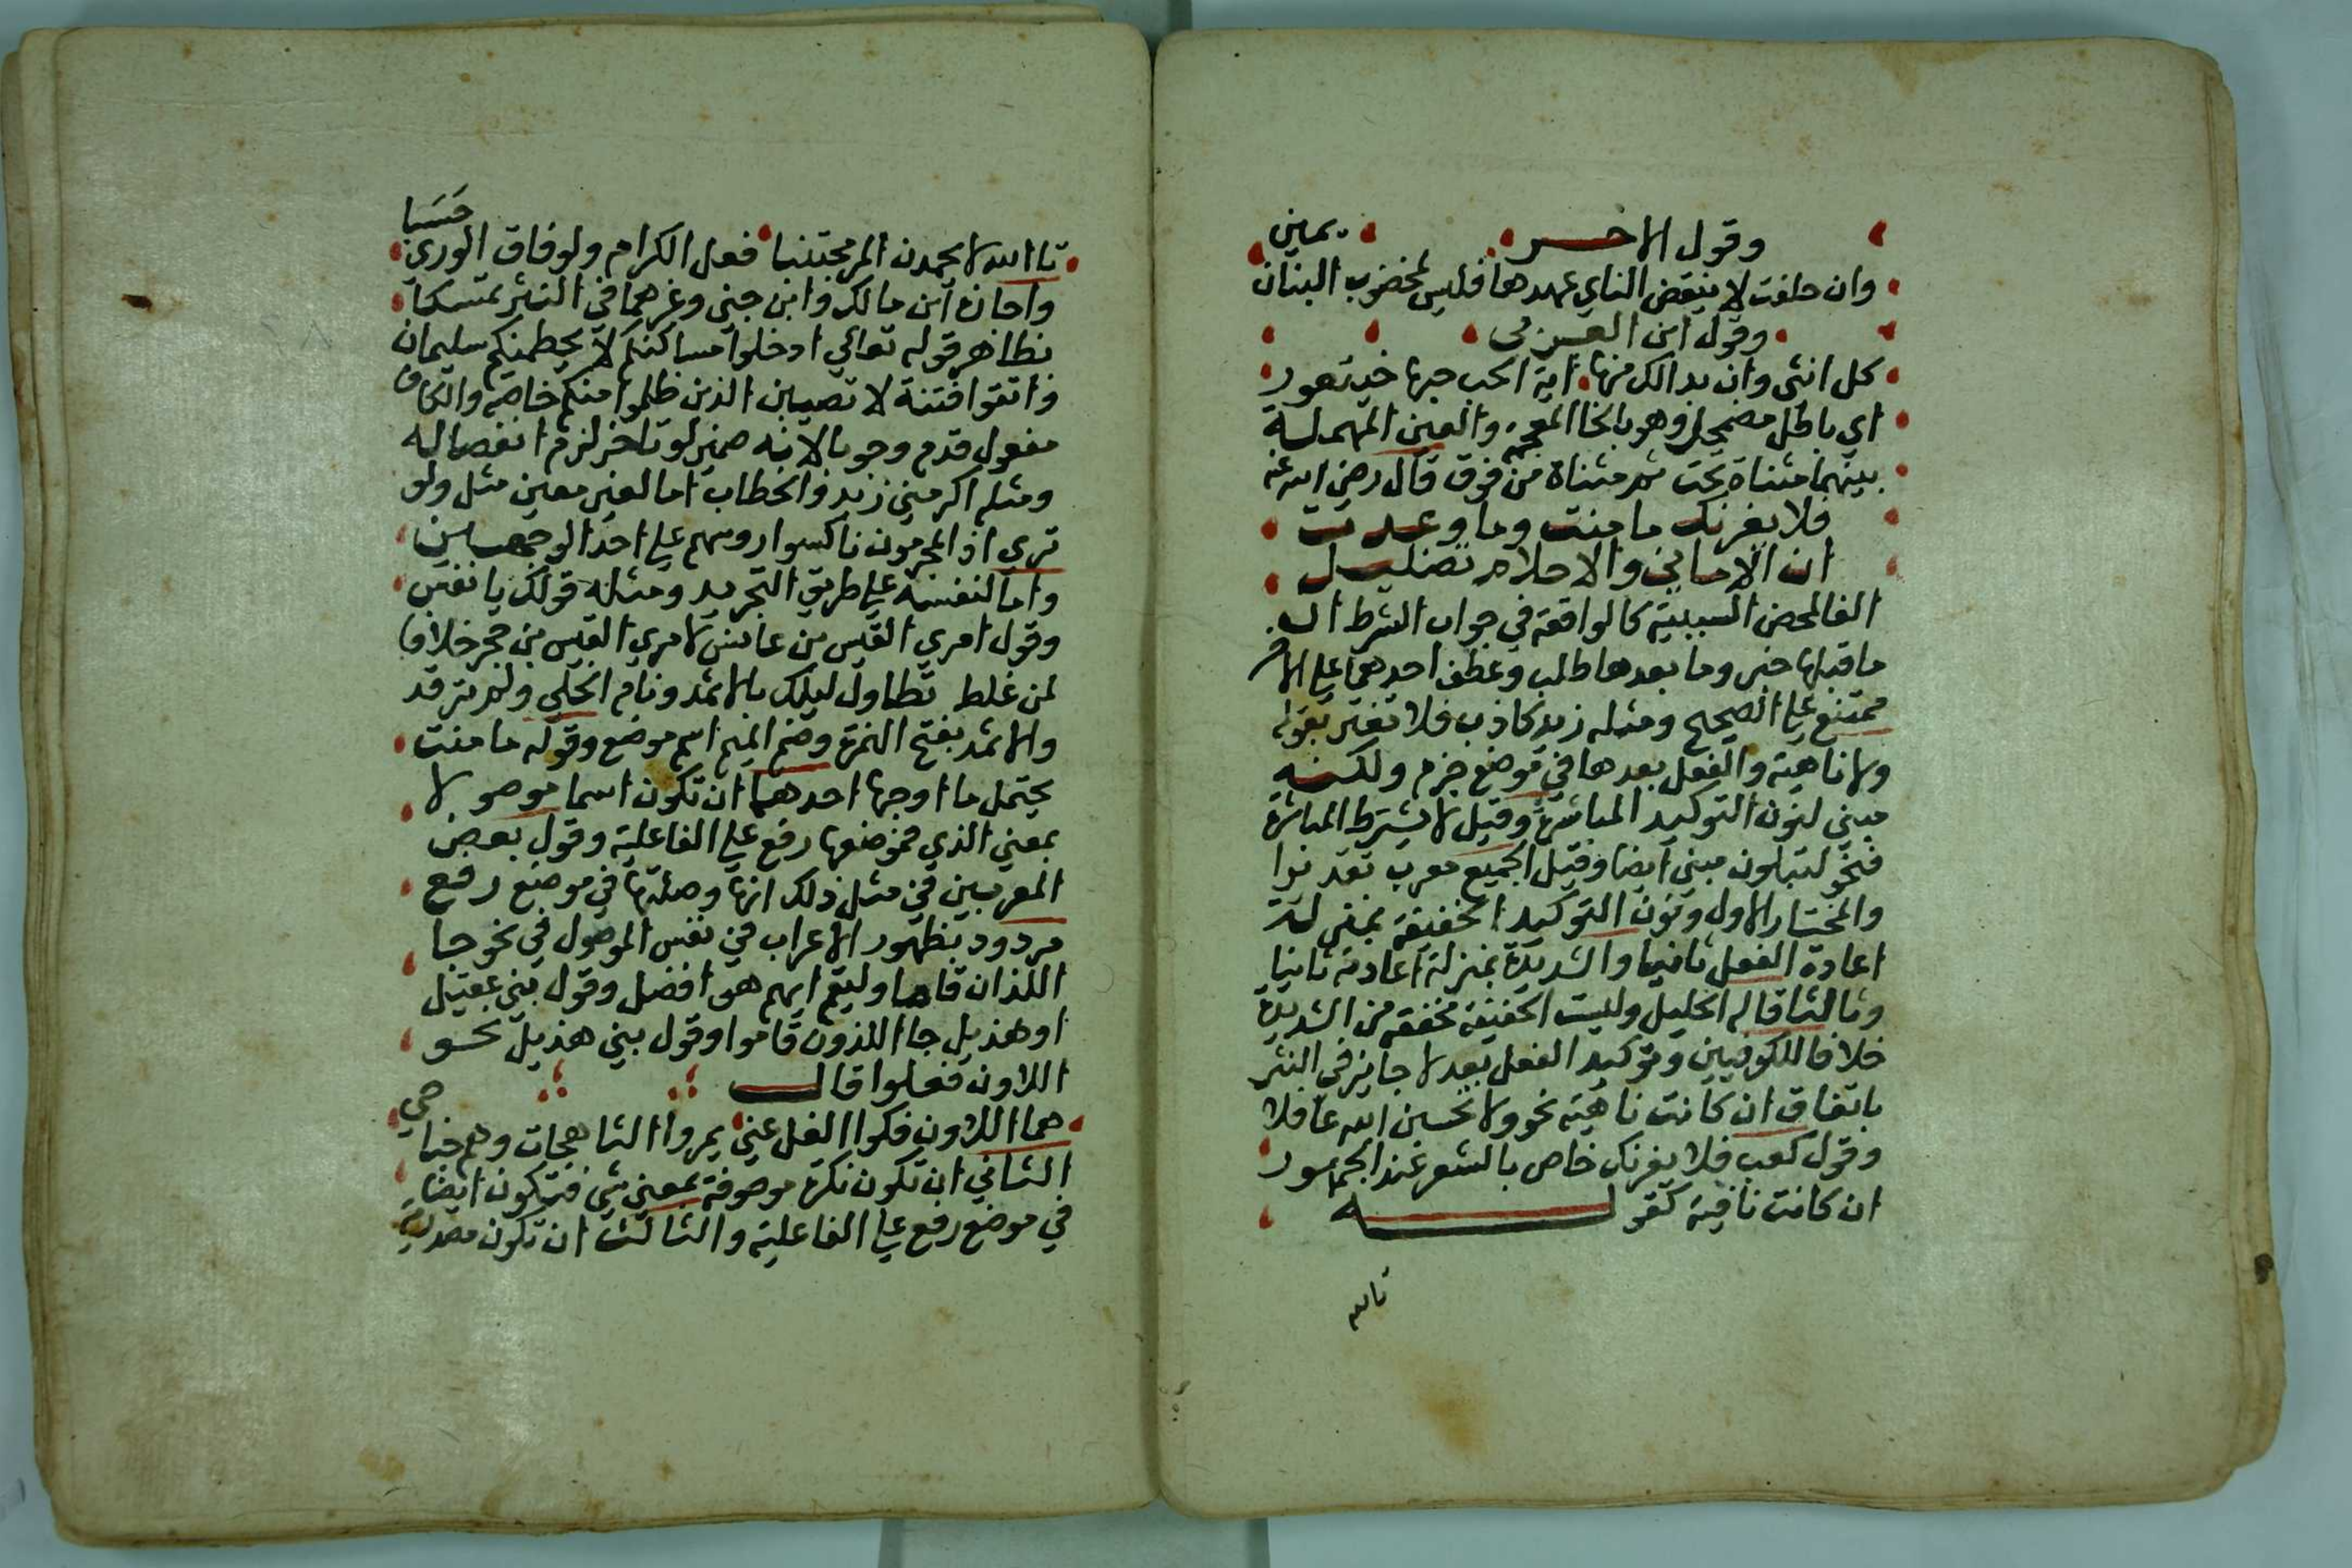 وقول الاخر
وان حلفت لا ينقض الناي عهدها فليس لمخضوب البنان يمين
وقول ابن العربي
كل انثى وان بدا لك منها اية الحب حبها خيتعور
اي باطل مضمحل وهو بالخا المعجمه والعين المهملة
بينهما مثناة تحت ثم مثناة من فوق قال رضي الله عنه
فلا يغرنك ما منت وما وعدت
ان الاماني والاحلام تضليل
الفا لمحض السببية كالواقعة في جواب الشرط اذ
ما قبلها خبر وما بعدها طلب وعطف احدهما على الاخر
ممتنع على الصحيح ومثله زيد كاذب فلا تغتر بقوله
ولا ناهية والفعل بعدها في موضع جزم ولكنه
مبني لنون التوكيد المباشرة وقيل لا يشترط المباشرة
فنحو لتبلون مبني ايضا وقيل الجميع معرب تقديرا
والمختار الاول ونون التوكيد الخفيفة بمنزلة
اعادة الفعل ثانيا والشديدة بمنزلة اعادته ثانيا
وثالثا قاله الخليل وليست الخفيفة مخففة من الشديدة
خلافا للكوفيين وتوكيد الفعل بعد لا جايز في النثر
باتفاق ان كانت ناهية نحو ولا تحسبن الله غافلا
وقول كعب فلا يغرنك خاص بالشعر عند الجمهور
ان كانت نافية كقوله
تالله
تا الله لا يحمدن المر مجتنبا فعل الكرام ولو فاق الورى حسبا
واجازه ابن مالك وابن جني وغرهما في النثر تمسكا
بظاهر قوله تعالي ادخلوا مساكنكم لا يحطمنكم سليمان
واتقوا فتنة لا تصيبن الذين ظلموا منكم خاصه والكاف
مفعول قدم وجوبا لانه ضمير لو تاخر لزم انفصاله
ومثله اكرمني زيد والخطاب اما لغير معين مثل ولو
تري اذ المجرمون ناكسوا روسهم على احد الوجهين
واما لنفسه على طريق التجريد ومثله قولك يا نفس
وقول امري القيس بن عابس لا امري القيس بن حجر خلافا
لمن غلط تطاول ليلك بالاثمد ونام الخلي ولم ترقد
والاثمد بفتح الهمزة وضم الميم اسم موضع وقوله ما منت
يحتمل ما اوجها احدها ان تكون اسما موصولا
بمعني الذي فموضعها رفع على الفاعلية وقول بعض
المعربين في مثل ذلك انها وصلتها في موضع رفع
مردود بظهور الاعراب في نفس الموصول في نحو جا
اللذان قاما وليقم ايهم هو افضل وقول بني عقيل
او هذيل جا اللذون قاموا وقول بني هذيل نحو
اللاون فعلوا قال
هما اللاون فكوا الغل عني بمروا الشاهجات وهم جناحي
الثاني ان تكون نكرة موصوفة بمعني شي فتكون ايضا
في موضع رفع على الفاعلية والثالث ان تكون مصدرية